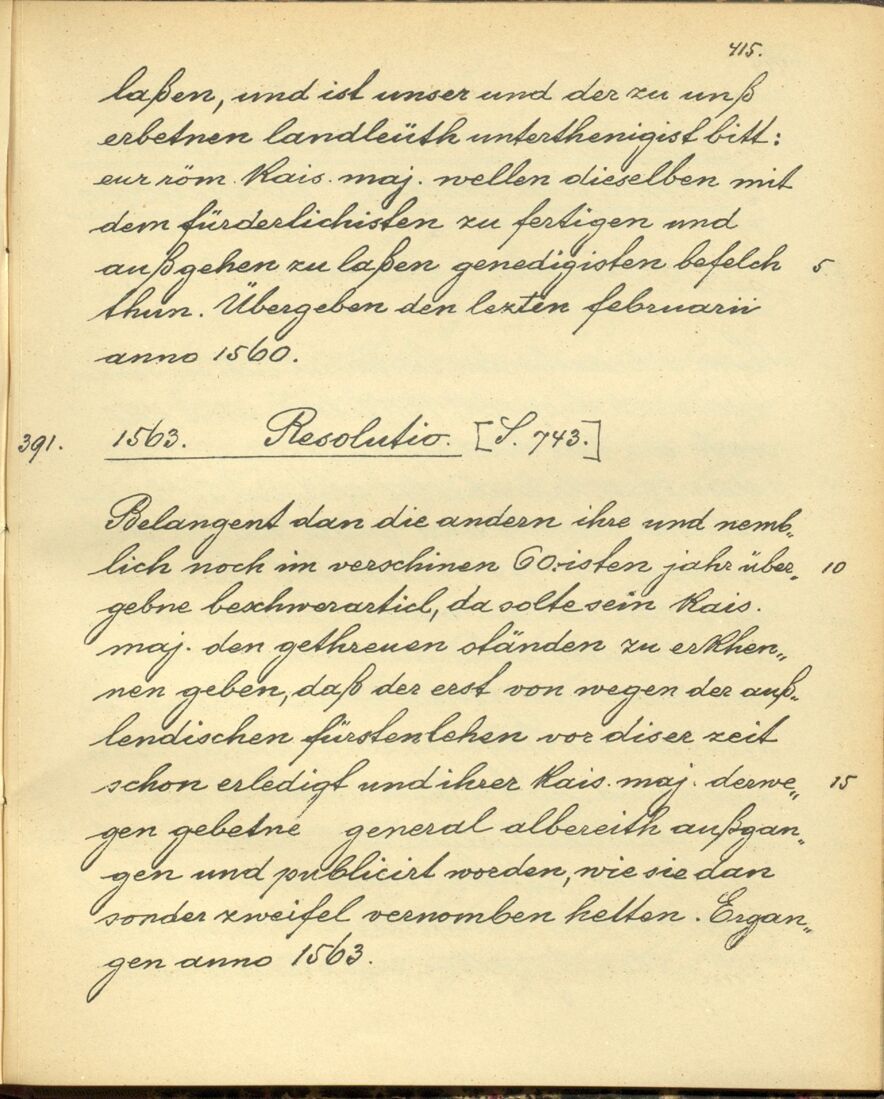 415.
laßen, und ist unser und der zu unß
erbetnen landleüth unterthenigist bitt:
eur röm. kais. maj. wellen dieselben mit
dem fürderlichisten zu fertigen und
außgehen zu laßen genedigisten befelch 5
thun. Übergeben den lezten februarii
anno 1560.
391. 1563. Resolutio. [S. 743.]
Belangent dan die andern ihre und nemb„
lich noch im verschinen 60:isten jahr über„ 10
gebne beschwerarticl, da solte sein kais.
maj. den gethreuen ständen zu erkhen„
nen geben, daß der erst von wegen der auß„
lendischen fürstenlehen vor diser zeit
schon erledigt und ihrer kais. maj. derwe„ 15
gen gebetne general albereith außgan„
gen und publicirt worden, wie sie dan
sonder zweifel vernomben hetten. Ergan„
gen anno 1563.